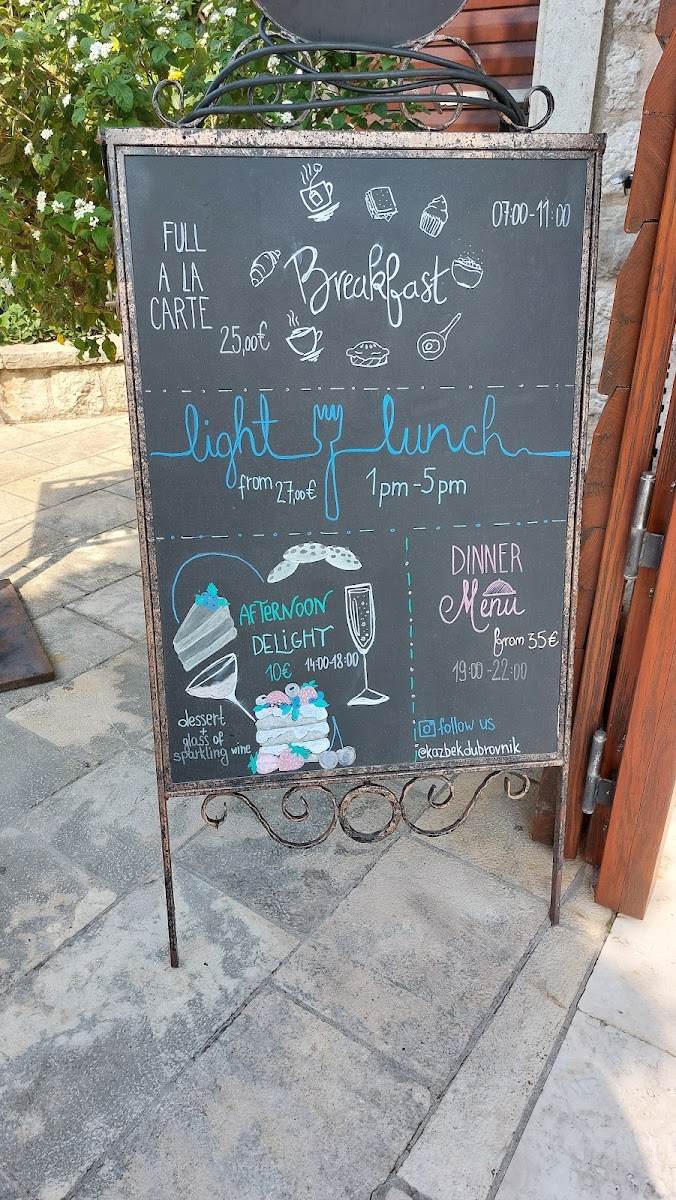 07:00-11:00
FULL
A LA
CARTE
25,00€
Breakfast
light lunch
from 27,00€
1pm-5pm
AFTERNOON
DELIGHT
10€ 14:00-18:00
dessert
+
glass of
sparkling wine
DINNER
Menu
from 35€
19:00-22:00
follow us
@kazbekdubrovnik